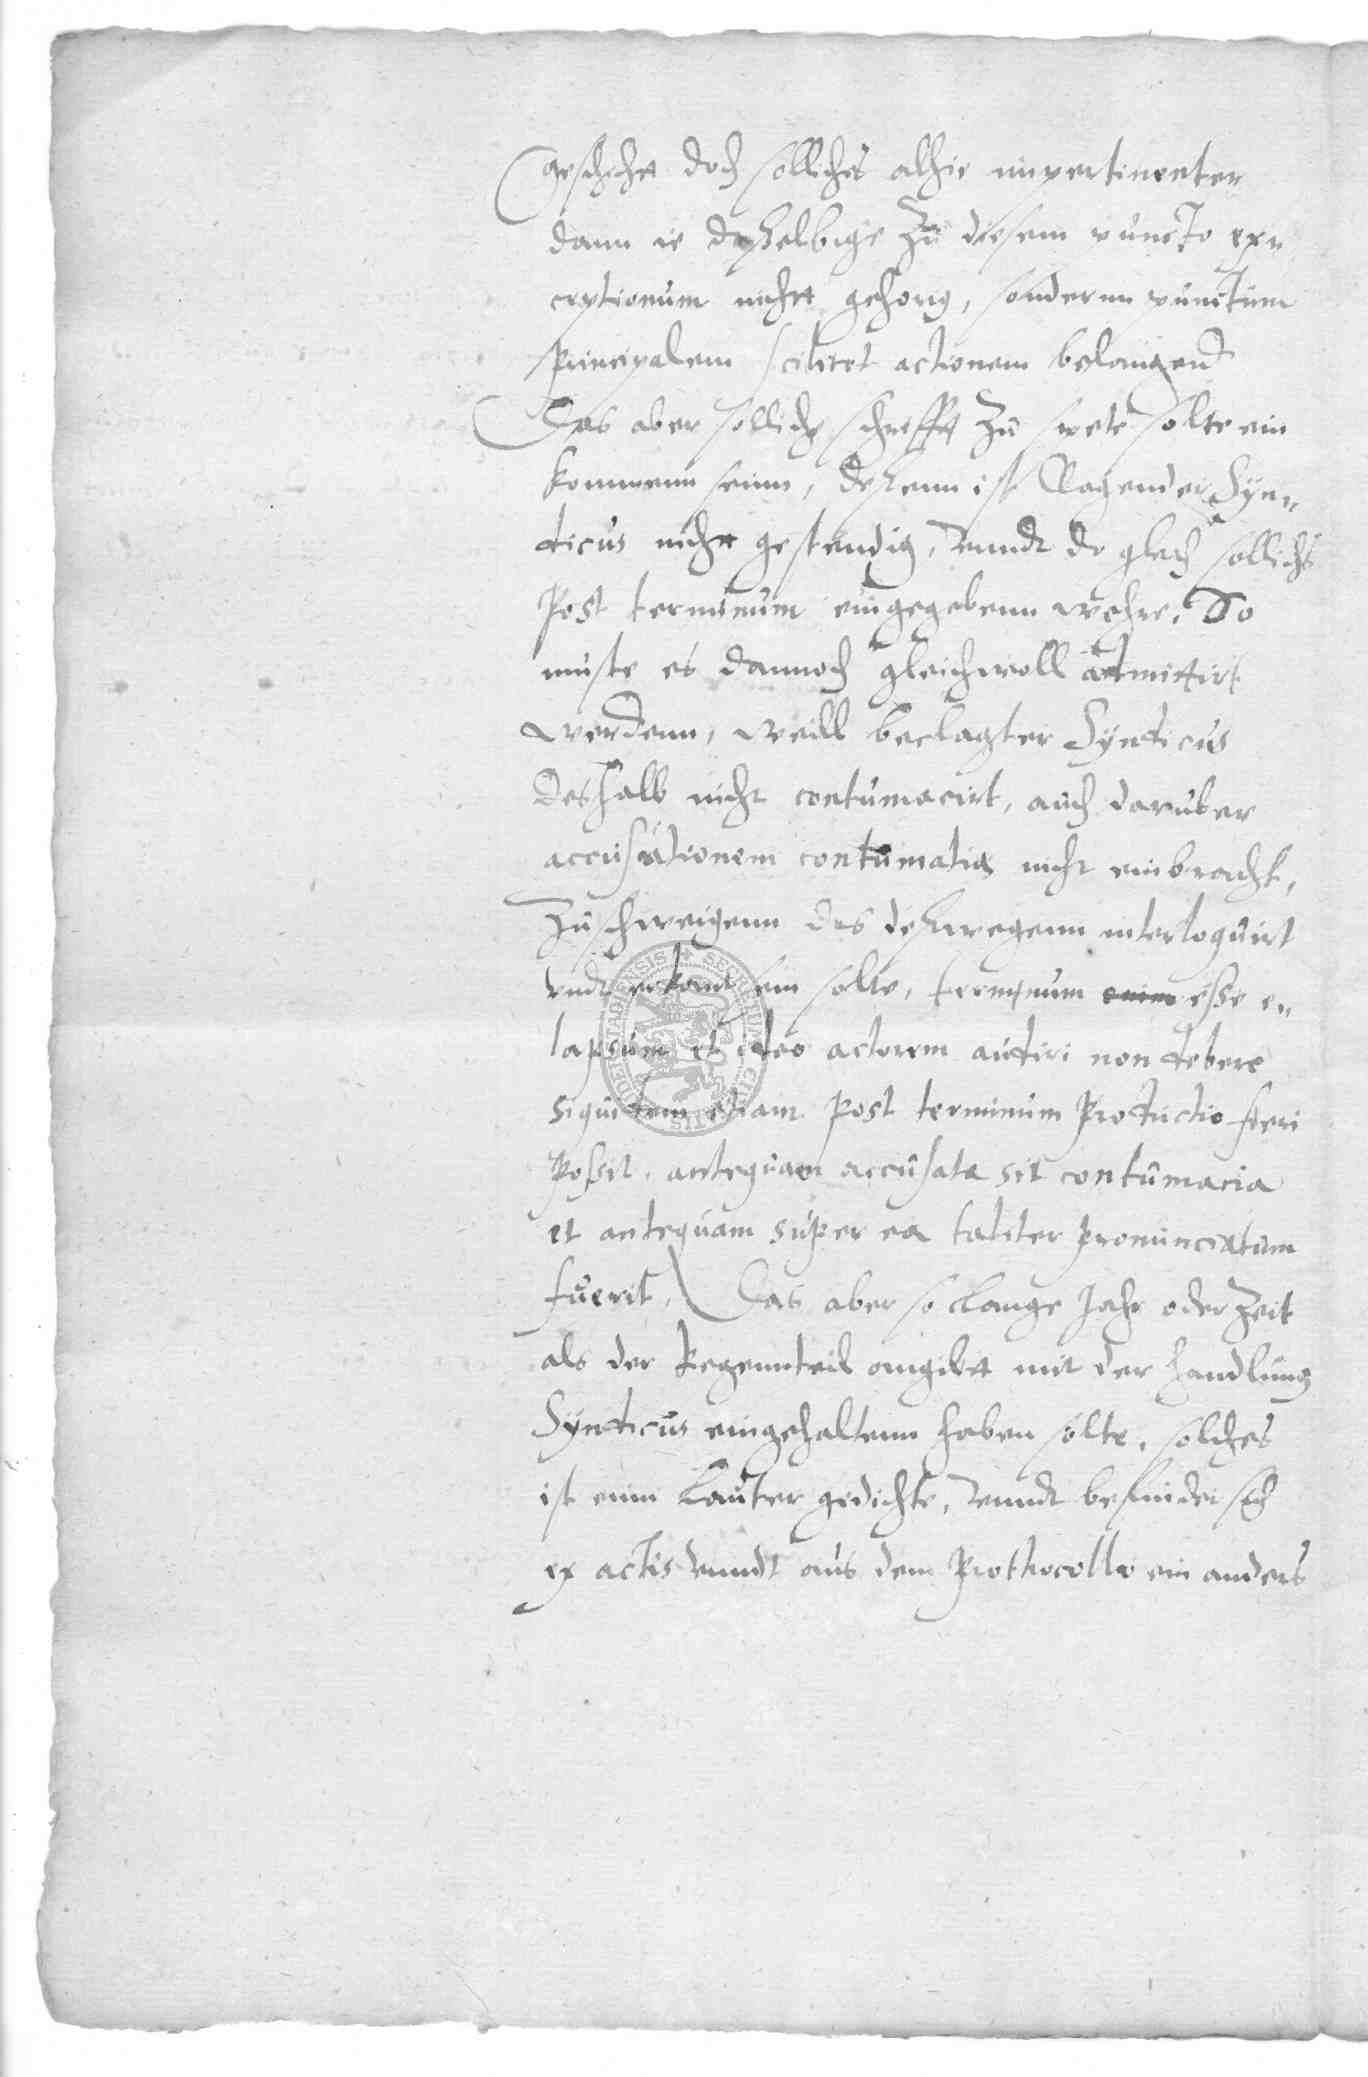 geschicht doch solliches alhie impertinenter
dann ie daßelbige zu diesem puncto ex„
ceptionum nicht gehorig, sondernn punctum
principalem scilicet actionem belangend
Das aber sollich schrifft zu spete solte ein
kommenn seinn, deßenn ist Clagender Syn„
dicus nicht gestendig, vnndt do gleich sollichs
Post terminum eingegebenn wehre, So
muste es dannoch gleichwoll admittirt
werdenn, weill beclagter Syndicus
deshalb nicht contumacirt, auch daruber
accusationem contumatiæ nicht einbracht,
Zuschweigenn das deßwegenn interloquirt
vndt erkant sein solte, terminum esse e„
lapsum et ideo actorem audiri non debere
siquidem etiam post terminum Productio fieri
Possit, antequam accusata sit contumacia
et antequam super ea taliter pronunciatum
fuerit, Das aber so lange Jahr oder Zeit
als der kegennteil angibtt mit der handlung
Syndicus eingehaltenn haben solte, solches
ist einn lauter gedichte, vnndt befindet sich
ex actis vnndt aus dem Prothocollo ein anders
SECRETUM CIVITATIS